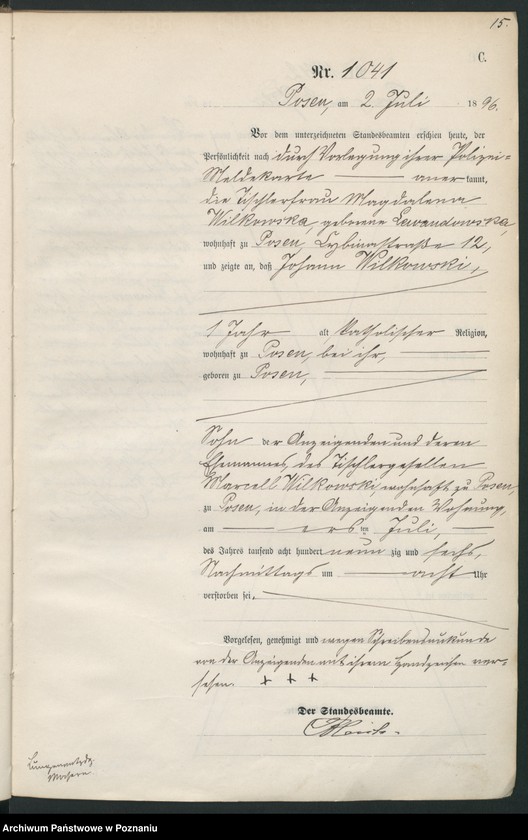 15.
C.
Nr. 1041
Posen, am 2. Juli 1896.
Vor dem unterzeichneten Standesbeamten erschien heute, der
Persönlichkeit nach durch Vorlegung ihrer Polizei=
Meldekarte anerkannt,
die Tischlerfrau Magdalena
Wilkowska, geborene Lewandowska,
wohnhaft zu Posen, Cybinastraße 12,
und zeigte an, daß Johann Wilkowski,
1 Jahr alt katholischer Religion,
wohnhaft zu Posen, bei ihr,
geboren zu Posen,
Sohn der Anzeigenden und deren
Ehemannes, des Tischlergesellen
Marcell Wilkowski, wohnhaft zu Posen,
zu Posen, in der Anzeigenden Wohnung,
am ersten Juli,
des Jahres tausend acht hundert neunzig und sechs,
Nachmittags um acht Uhr
verstorben sei.
Vorgelesen, genehmigt und wegen Schreibensunkunde
von der Anzeigenden mit ihrem Handzeichen ver=
sehen. + + +
Der Standesbeamte.
Archiwum Państwowe w Poznaniu